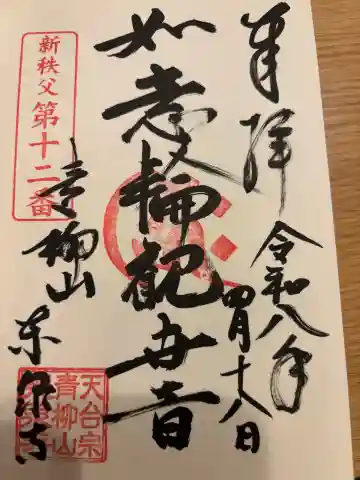 奉拝
令和八年
四月十八日
如意輪観世音
新秩父第十二番
青柳山
東泉寺
天台宗
青柳山